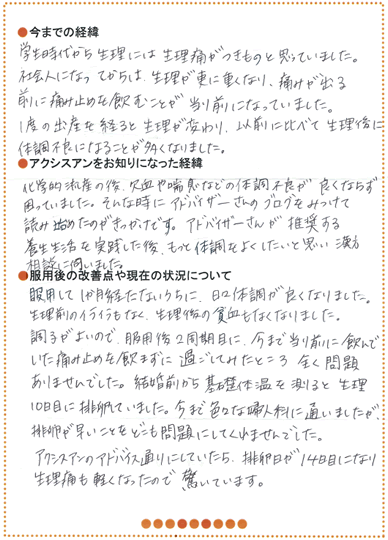 ●今までの経緯
学生時代から生理には生理痛がつきものと思っていました。
社会人になってからは、生理が更に重くなり、痛みが出る
前に痛み止めを飲むことが当り前になっていました。
1度の出産を経ると生理が変わり、以前に比べて生理後に
体調不良になることが多くなりました。
●アクシスアンをお知りになった経緯
化学的流産の後、欠血や喘息などの体調不良が良くならず
困っていました。そんな時にアドバイザーさんのブログをみつけて
読み始めたのがきっかけです。アドバイザーさんが推奨する
養生生活を実践した後、もっと体調をよくしたいと思い漢方
相談に伺いました。
●服用後の改善点や現在の状況について
服用して1か月経たないうちに、日々体調が良くなりました。
生理前のイライラもなく、生理後の貧血もなくなりました。
調子がよいので、服用後2周期目に、今まで当り前に飲んで
いた痛み止めを飲まずに過ごしてみたところ全く問題
ありませんでした。結婚前から基礎体温を測ると生理
10日目に排卵していました。今まで色々な婦人科に通いましたが、
排卵が早いことをどこも問題にしてくれませんでした。
アクシスアンのアドバイス通りにしていたら、排卵日が14日目になり
生理痛も軽くなったので驚いています。